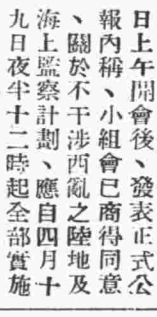 日上午開會後、發表正式公
報內稱、小組會已商得同意
、關於不干涉西亂之陸地及
海上監察計劃、應自四月十
九日夜半十二時起全部實施